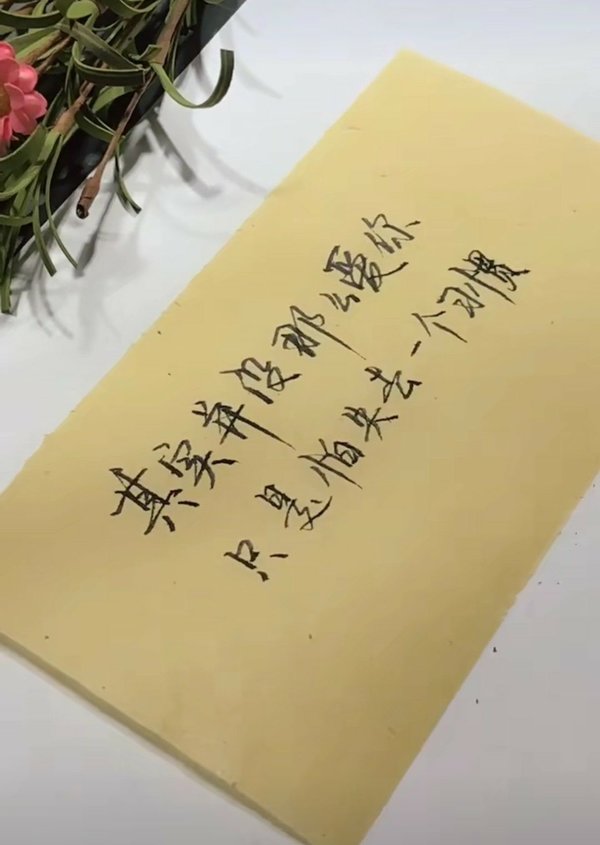 其实并没那么爱你
只是怕失去一个习惯